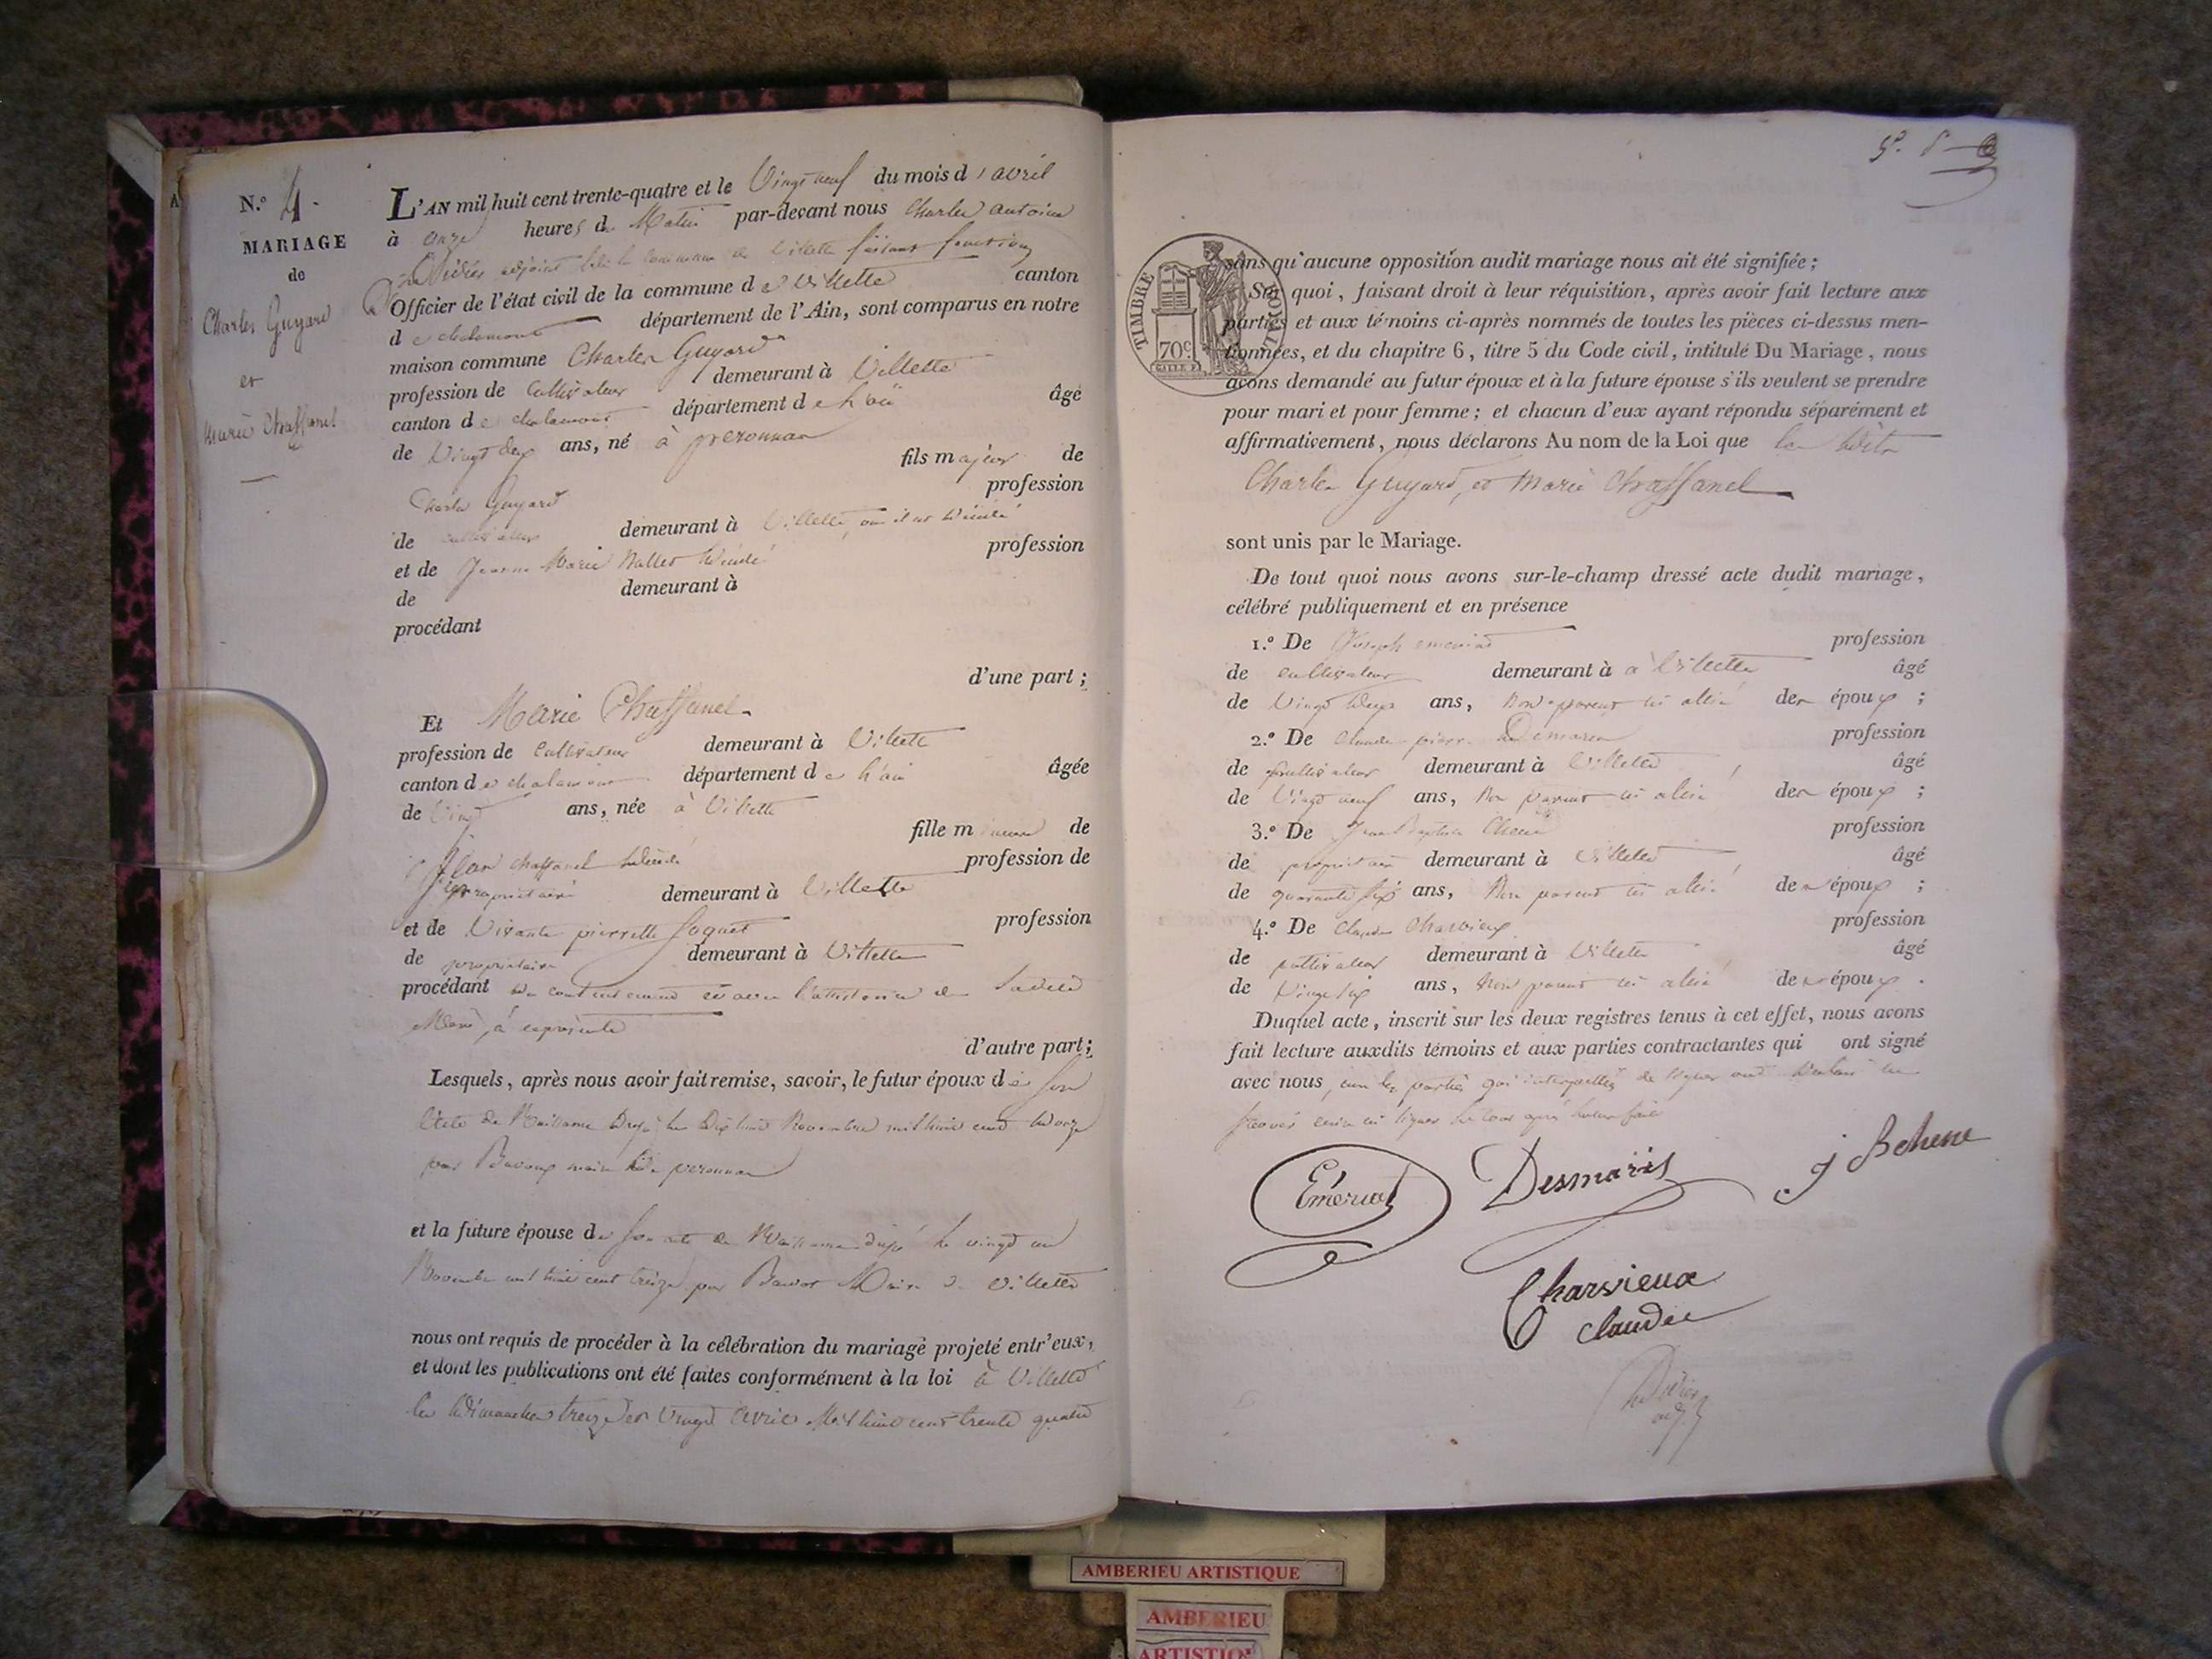 N.º 4.
MARIAGE
de
Charles Guyard
et
Marie Chaffanel
L'AN mil huit cent trente-quatre et le Vingt neuf du mois d'avril
à onze heures du Matin par-devant nous Charles antoine
Didier adjoint de la commune de Villette faisant fonctions
Officier de l'état civil de la commune de Villette canton
de chalamont département de l'Ain, sont comparus en notre
maison commune Charles Guyard
profession de Cultivateur demeurant à Villette
canton de chalamont département de l'ain âgé
de Vingt deux ans, né à peronnas
fils majeur de
Charles Guyard profession
de cultivateur demeurant à Villette, où il est décédé
et de Jeanne Marie décédé profession
de demeurant à
procédant
d'une part ;
Et Marie Chaffanel
profession de Cultivateur demeurant à Villette
canton de chalamont département de l'ain âgée
de Vingt ans, née à Villette
fille mineure de
Jean Chaffanel décédé profession de
propriétaire demeurant à Villette
et de pierrette profession
de propriétaire demeurant à Villette
procédant du consentement et avec l'assistance de Sadite
Mère, à ce présente
d'autre part ;
Lesquels, après nous avoir fait remise, savoir, le futur époux de son
acte de Naissance du dix huit Novembre mil huit cent onze
par maire de peronnas
et la future épouse de son acte de Naissance le vingt un
Novembre mil huit cent treize par Maire de Villette
nous ont requis de procéder à la célébration du mariage projeté entr'eux,
et dont les publications ont été faites conformément à la loi à Villette
les dimanches treize et vingt avril Mil huit cent trente quatre
TIMBRE ROYAL
70c
sans qu'aucune opposition audit mariage nous ait été signifiée ;
Sur quoi, faisant droit à leur réquisition, après avoir fait lecture aux
parties et aux témoins ci-après nommés de toutes les pièces ci-dessus men-
tionnées, et du chapitre 6, titre 5 du Code civil, intitulé Du Mariage, nous
avons demandé au futur époux et à la future épouse s'ils veulent se prendre
pour mari et pour femme ; et chacun d'eux ayant répondu séparément et
affirmativement, nous déclarons Au nom de la Loi que les dits
Charles Guyard, et Marie Chaffanel
sont unis par le Mariage.
De tout quoi nous avons sur-le-champ dressé acte dudit mariage,
célébré publiquement et en présence
1.º De Joseph emeriat profession
de cultivateur demeurant à à Villette âgé
de Vingt deux ans, Non parent ni allié des époux ;
2.º De Claude pierre Demaris profession
de cultivateur demeurant à Villette âgé
de Vingt neuf ans, Non parent ni allié des époux ;
3.º De Jean Baptiste Chene profession
de propriétaire demeurant à Villette âgé
de quarante six ans, Non parent ni allié des époux ;
4.º De Claude Charvieux profession
de cultivateur demeurant à Villette âgé
de Vingt six ans, Non parent ni allié des époux.
Duquel acte, inscrit sur les deux registres tenus à cet effet, nous avons
fait lecture auxdits témoins et aux parties contractantes qui ont signé
avec nous, non les parties qui interpellées de signer ont déclaré ne
Savoir écrire ni signer
Emeriat
Desmaris
j B chene
Charvieux
claude
Didier
adj
AMBERIEU ARTISTIQUE
AMBERIEU
ARTISTIQUE